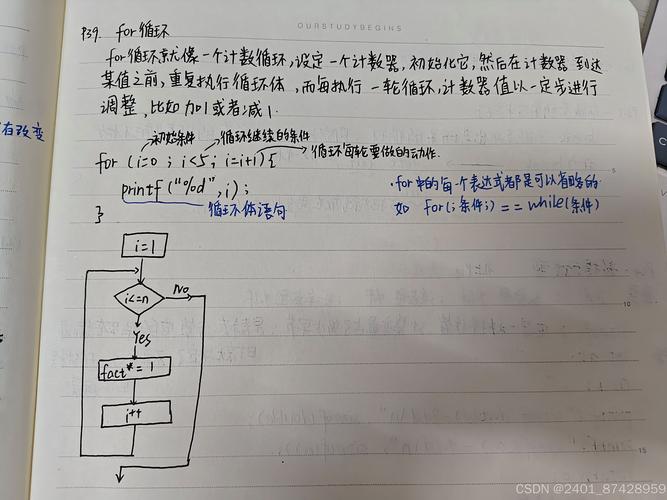 OURSTUDYBEGINS
P39. for循环
for循环就像一个计数循环,设定一个计数器,初始化它,然后在计数器到达
某值之前,重复执行循环体,而每执行一轮循环,计数器值以一定步进行
调整,比如加1或者减1.
有改变
初始条件 循环继续的条件
for (i=0 ; i<5; i=i+1){ 循环每轮要做的动作.
printf ("%d", i);
循环体语句
}
·for中的每一个表达式都是可以省略的
如 for(;条件;) == while(条件)
i=1
i<=n
No
Yes
fact*= 1
i++
5
10
15
CSDN @2401_87428959